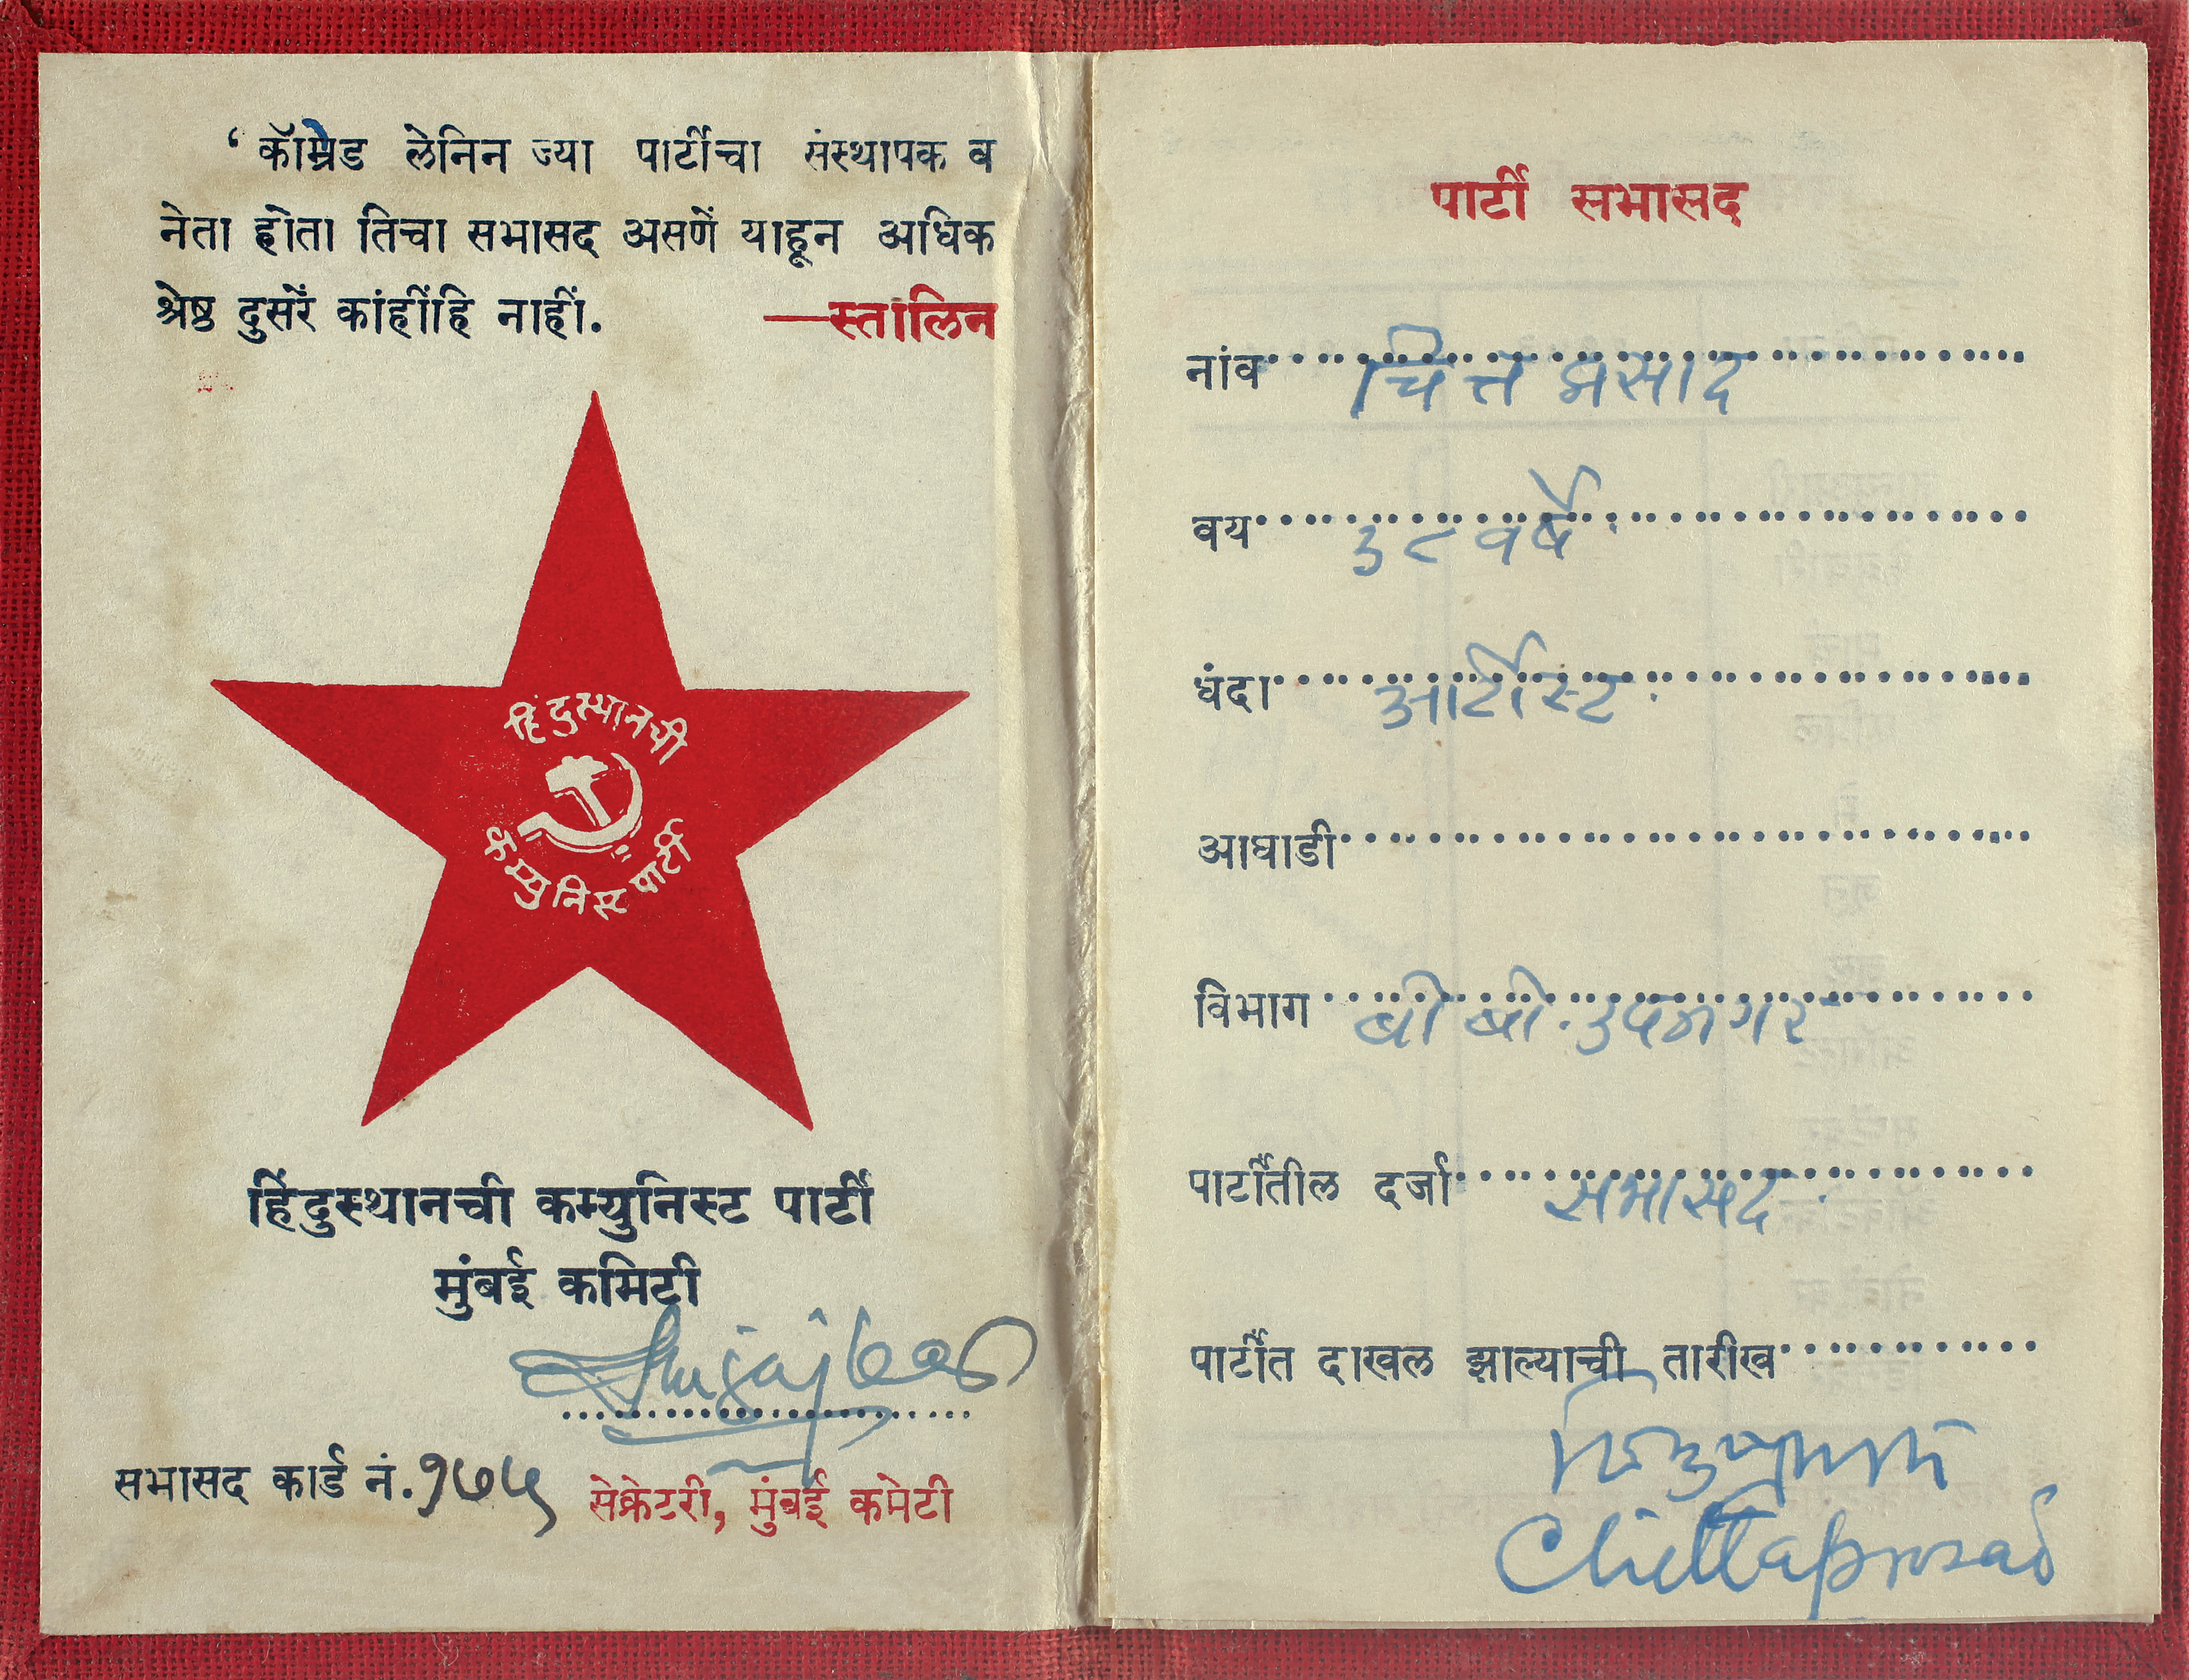 ‘ कॉम्रेड लेनिन ज्या पार्टीचा संस्थापक व
नेता होता तिचा सभासद असणें याहून अधिक
श्रेष्ठ दुसरें कांहींहि नाहीं. —स्तालिन
हिंदुस्थानची
कम्युनिस्ट पार्टी
हिंदुस्थानची कम्युनिस्ट पार्टी
मुंबई कमिटी
सभासद कार्ड नं. १७५
सेक्रेटरी, मुंबई कमेटी
पार्टी सभासद
नांव चित्त प्रसाद
वय ३८ वर्षे.
धंदा आर्टीस्ट.
आघाडी
विभाग बी बी. उपनगर
पार्टीतील दर्जा सभासद.
पार्टीत दाखल झाल्याची तारीख
Chittaprosad